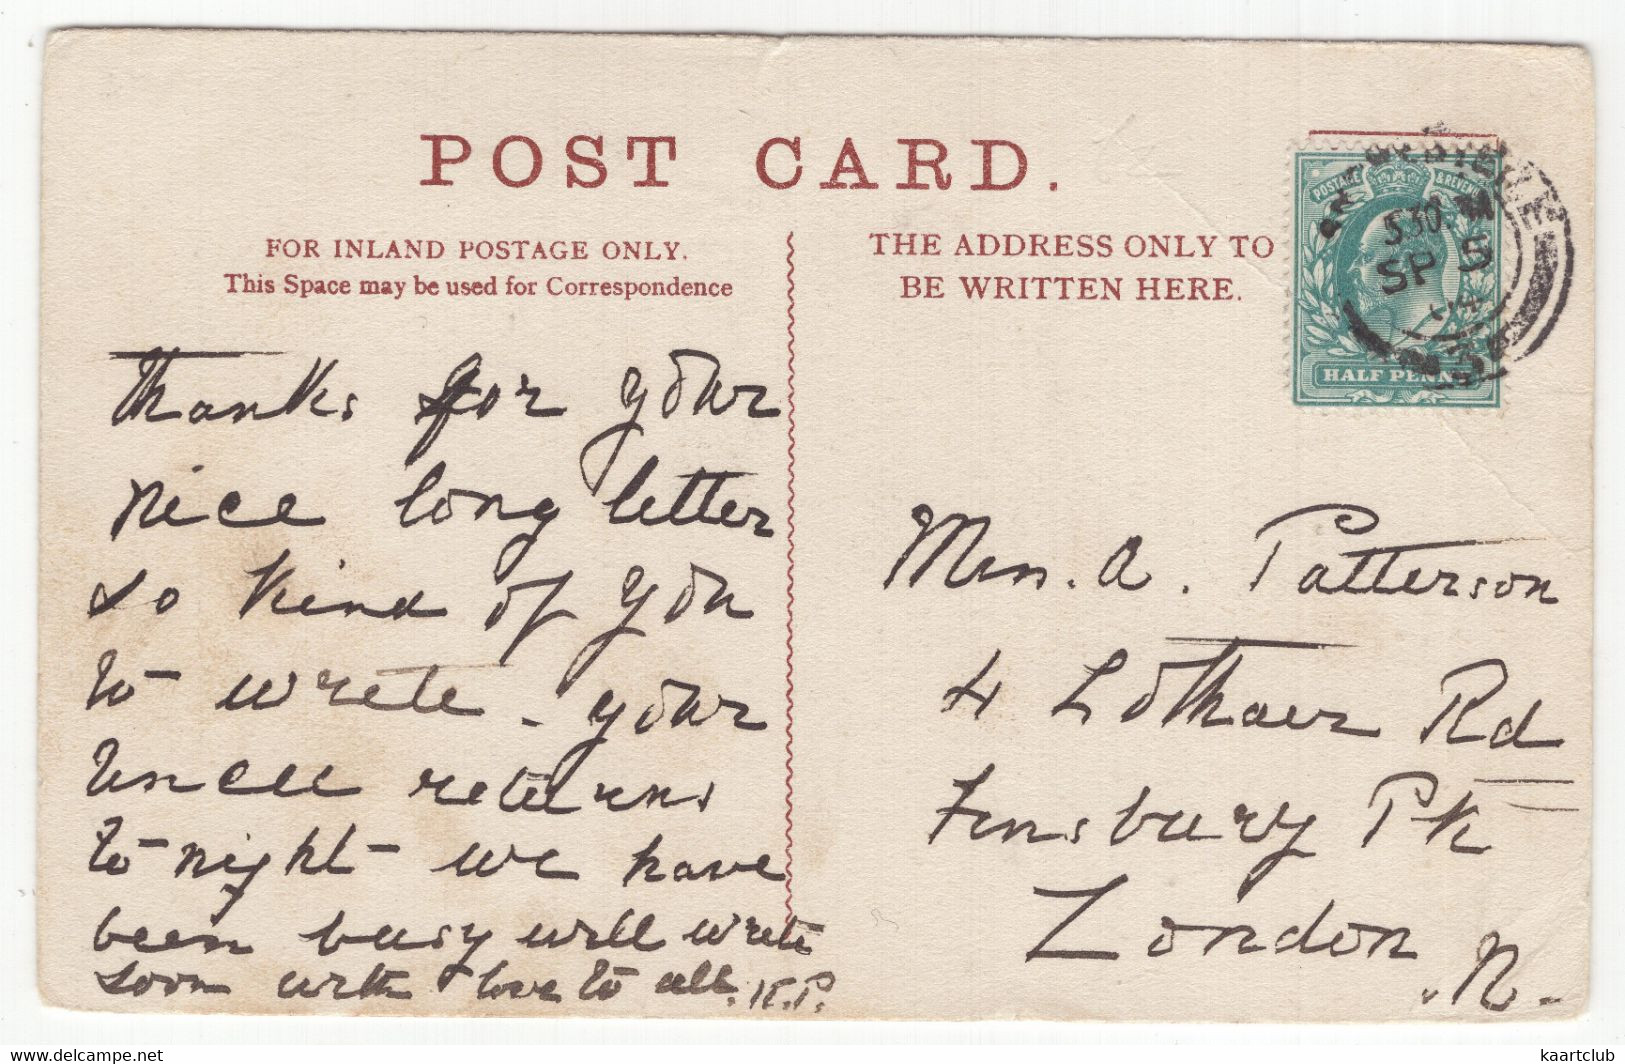 POST CARD.
FOR INLAND POSTAGE ONLY.
This Space may be used for Correspondence
THE ADDRESS ONLY TO
BE WRITTEN HERE.
POSTAGE & REVENUE
530
SP 5
04
HALF PENNY
Thanks for your
nice long letter
so kind of you
to write - your
Uncle returns
to night - we have
been busy will write
soon with love to all. K.P.
Mrs. A. Patterson
4 Lothair Rd
Finsbury Pk
London
N.
kaartclub